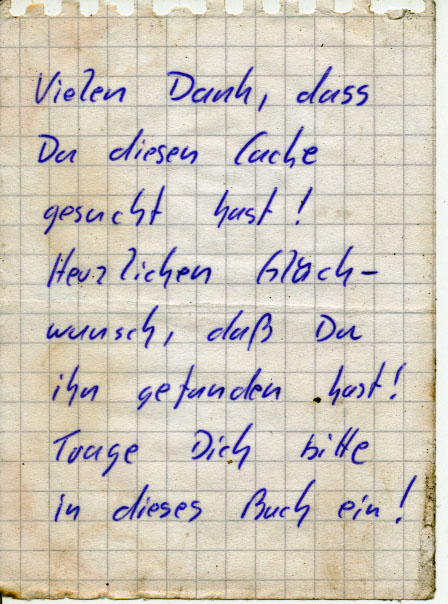 Vielen Dank, dass
Du diesen Cache
gesucht hast!
Herzlichen Glück-
wunsch, daß Du
ihn gefunden hast!
Trage Dich bitte
in dieses Buch ein!